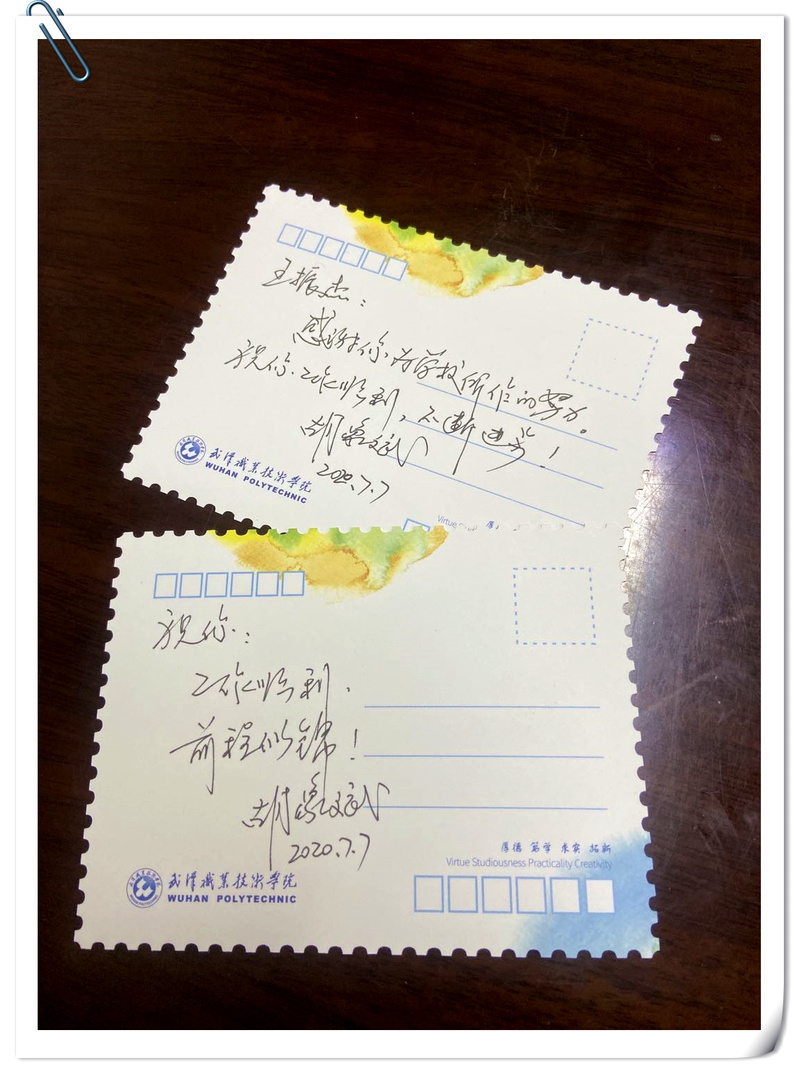 王振杰：
感谢你为学校所作的努力。
祝你工作顺利，不断进步！
胡
2020.7.7
武汉职业技术学院
WUHAN POLYTECHNIC
Virtue
祝你：
工作顺利，
前程似锦！
胡
2020.7.7
厚德 笃学 求实 拓新
Virtue Studiousness Practicality Creativity
武汉职业技术学院
WUHAN POLYTECHNIC